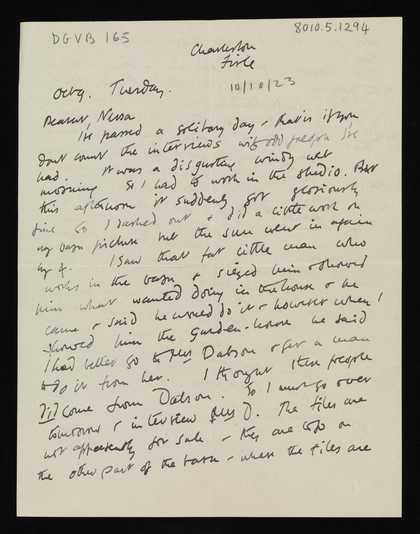 DGVB 165
8010.5.1294
Charleston
Firle
Octy. Tuesday.
10/10/23
Dearest Nessa
I've passed a solitary day - that is if you
dont count the interviews with odd people I've
had. It was a disgusting windy wet
morning so I had to work in the studio. But
this afternoon it suddenly got gloriously
fine so I dashed out & did a little work on
my barn picture but the sun went in again
by 4. I saw that fat little man who
works in the barn & siezed him & showed
him what wanted doing in the house & he
came & said he would do it & however when I
showed him the Garden-house he said
I had better go to Mrs Dabson & get a man
to do it from her. I thought these people
DID come from Dabson. So I must go over
tomorrow & interview Mrs D. The tiles are
not apparently for sale - they are to go on
the other part of the barn - where the tiles are